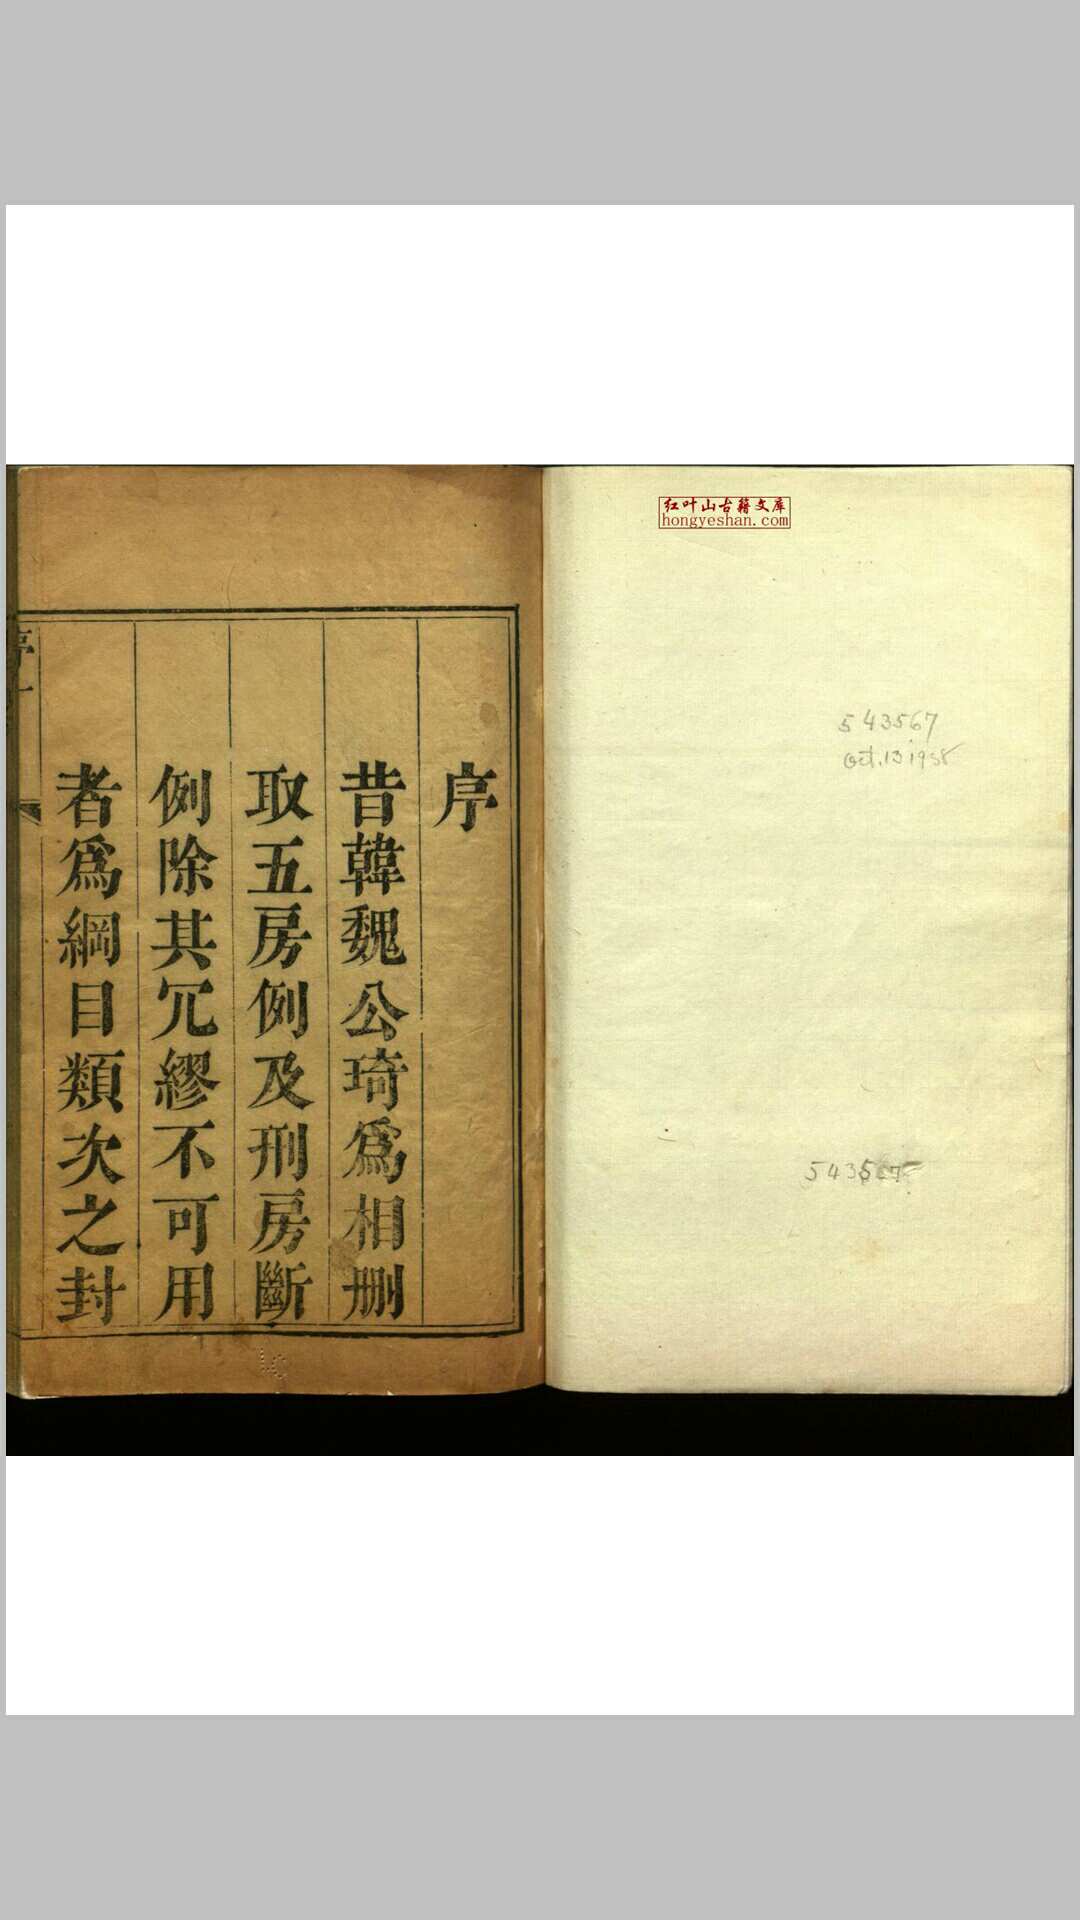 红叶山古籍文库
hongyeshan.com
543567
Oct. 13 1938
序
昔韓魏公琦為相刪
取五房例及刑房斷
例除其冗繆不可用
者為綱目類次之封
序